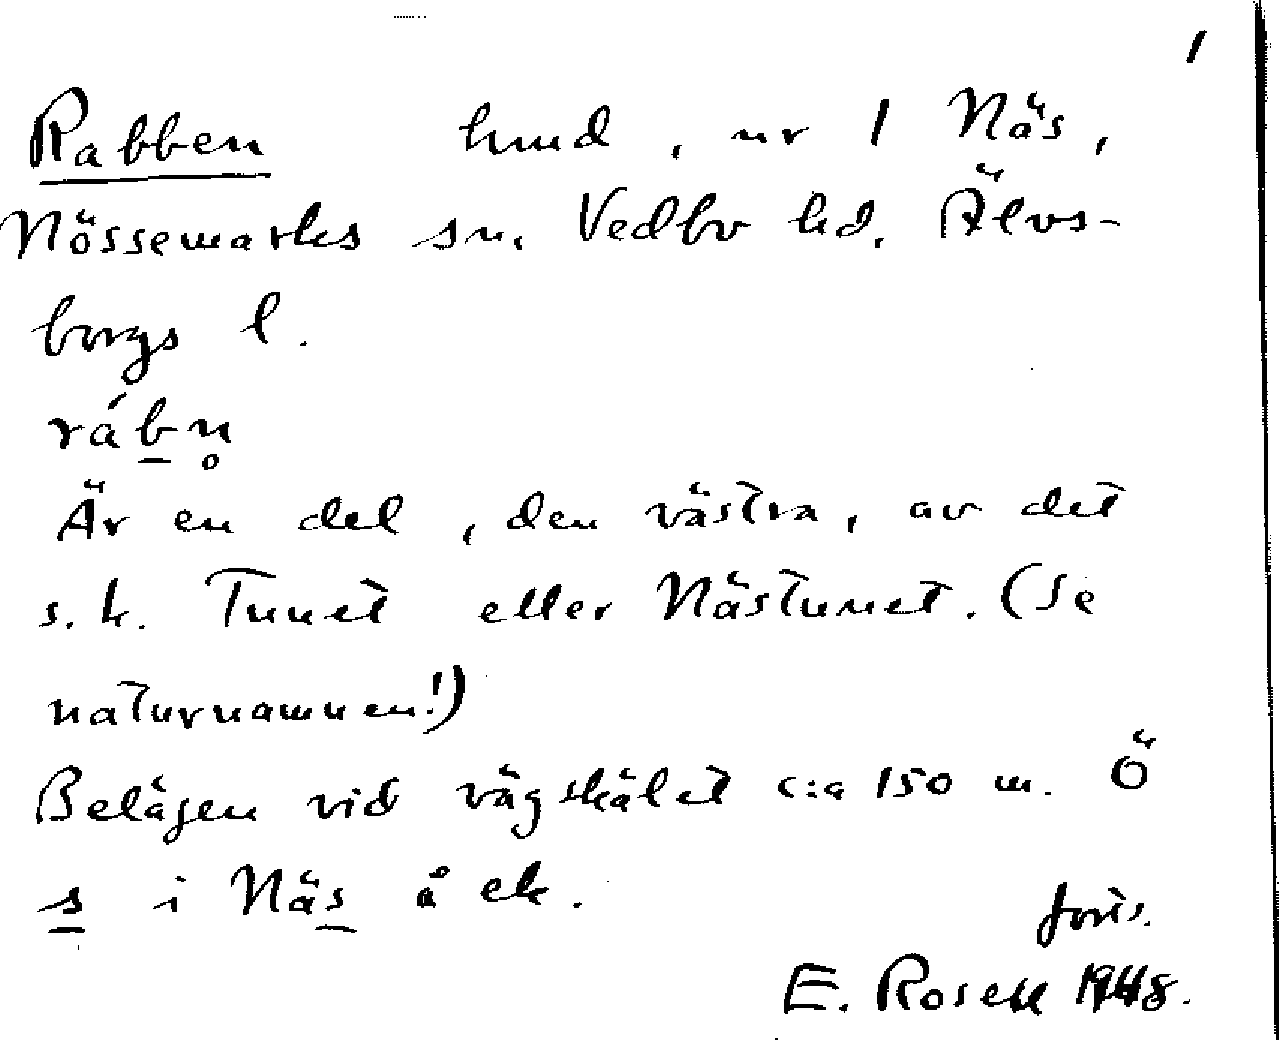 1
Rabben hmd, nr 1 Näs,
Nössemarks sn. Vedbo hd. Älvs-
borgs l.
rábn̥
Är en del, den västra, av det
s.k. Tunet eller Nästunet. (Se
naturnamnen!)
Belägen vid vägskälet c:a 150 m. Ö
s i Näs å ek.
forts.
E. Rosell 1948.